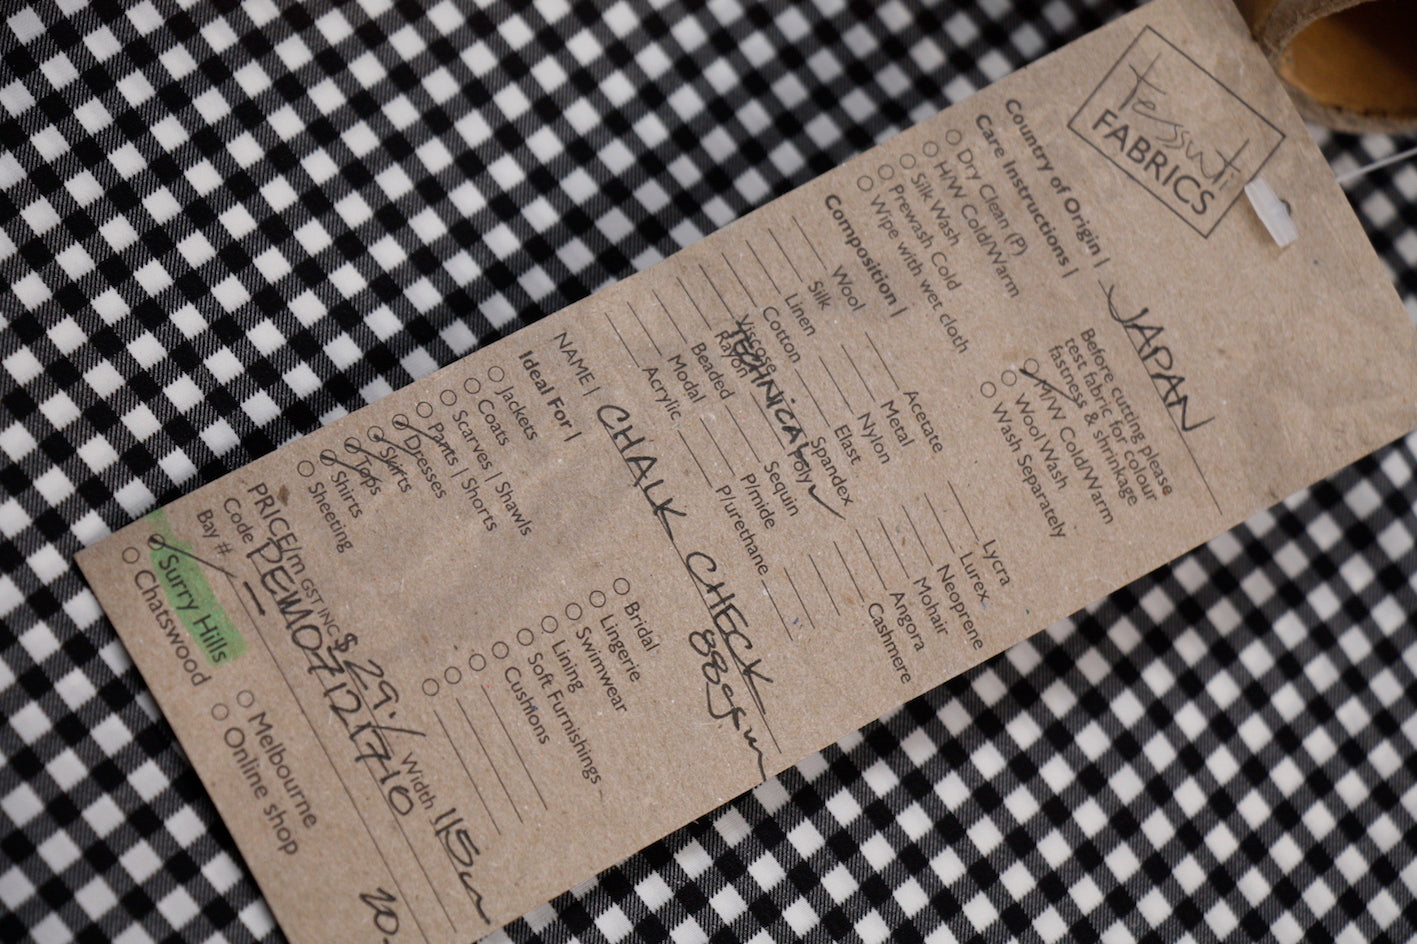 tessuti
FABRICS
Country of Origin | JAPAN
Care Instructions |
Dry Clean (P)
H/W Cold/Warm
Silk Wash
Prewash Cold
Wipe with wet cloth
Before cutting please
test fabric for colour
fastness & shrinkage
M/W Cold/Warm
Wool Wash
Wash Separately
Composition |
Wool
Silk
Linen
Cotton
Viscose
Rayon
Beaded
Modal
Acrylic
TECHNICAL
Acetate
Metal
Nylon
Elast
Spandex
Poly
Sequin
P/mide
P/urethane
Lycra
Lurex
Neoprene
Mohair
Angora
Cashmere
NAME | CHALK CHECK
88gsm
Ideal For |
Jackets
Coats
Scarves | Shawls
Pants | Shorts
Dresses
Skirts
Tops
Shirts
Sheeting
Bridal
Lingerie
Swimwear
Lining
Soft Furnishings
Cushions
PRICE/m GST INC $29./ Width 115
Code DEM07121710
Bay #
Surry Hills
Chatswood
Melbourne
Online shop